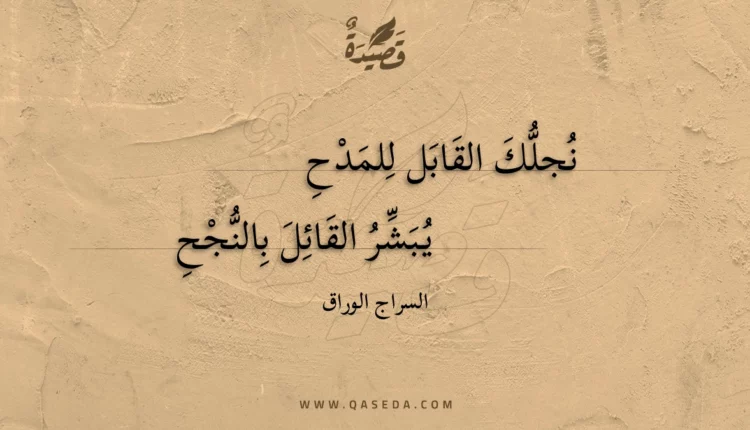 قَصِيْدَةٌ
نُجلُّكَ القَابَل لِلمَدْحِ
يُبَشِّرُ القَائِلَ بِالنُّجْحِ
السراج الوراق
WWW.QASEDA.COM